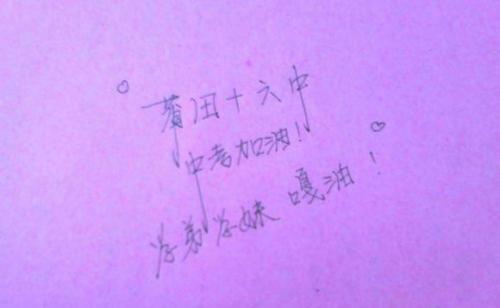 莆田十六中
中考加油!
学弟学妹 嘎油!